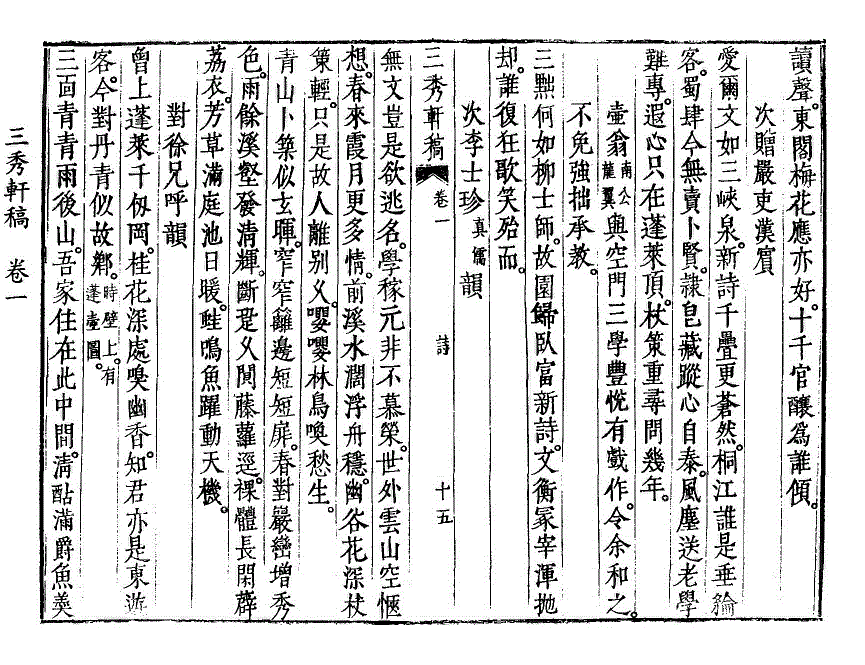 讀聲。東閣梅花應亦好。十千官釀爲誰傾。
次贈嚴吏漢賓
愛爾文如三峽泉。新詩千疊更蒼然。桐江誰是垂綸
客。蜀肆今無賣卜賢。隷皂藏蹤心自泰。風塵送老學
難專。遐心只在蓬萊頂。杖策重尋問幾年。
壺翁南公龍翼與空門三學豊悅有戱作。令余和之。
不免強拙承教。
三黙何如柳士師。故園歸臥富新詩。文衡冡宰渾抛
却。誰復狂歌笑殆而。
次李士珍眞儒韻
三秀軒稿 卷一 詩 十五
無文豈是欲逃名。學稼元非不慕榮。世外雲山空愜
想。春來霞月更多情。前溪水濶浮舟穩。幽谷花深杖
策輕。只是故人離别乆。嚶嚶林鳥喚愁生。
靑山卜築似玄暉。窄窄籬邊短短扉。春對巖巒增秀
色。雨餘溪壑發淸輝。斷跫乆閴藤蘿逕。裸體長閑薜
荔衣。芳草滿庭池日暖。鮭鳴魚躍動天機。
對徐兄呼韻
曾上蓬萊千仭岡。桂花深處嗅幽香。知君亦是東遊
客。今對丹靑似故鄕。時壁上。有蓬壺圖。
三面靑靑雨後山。吾家住在此中間。淸酤滿爵魚羹
三秀軒稿 卷一